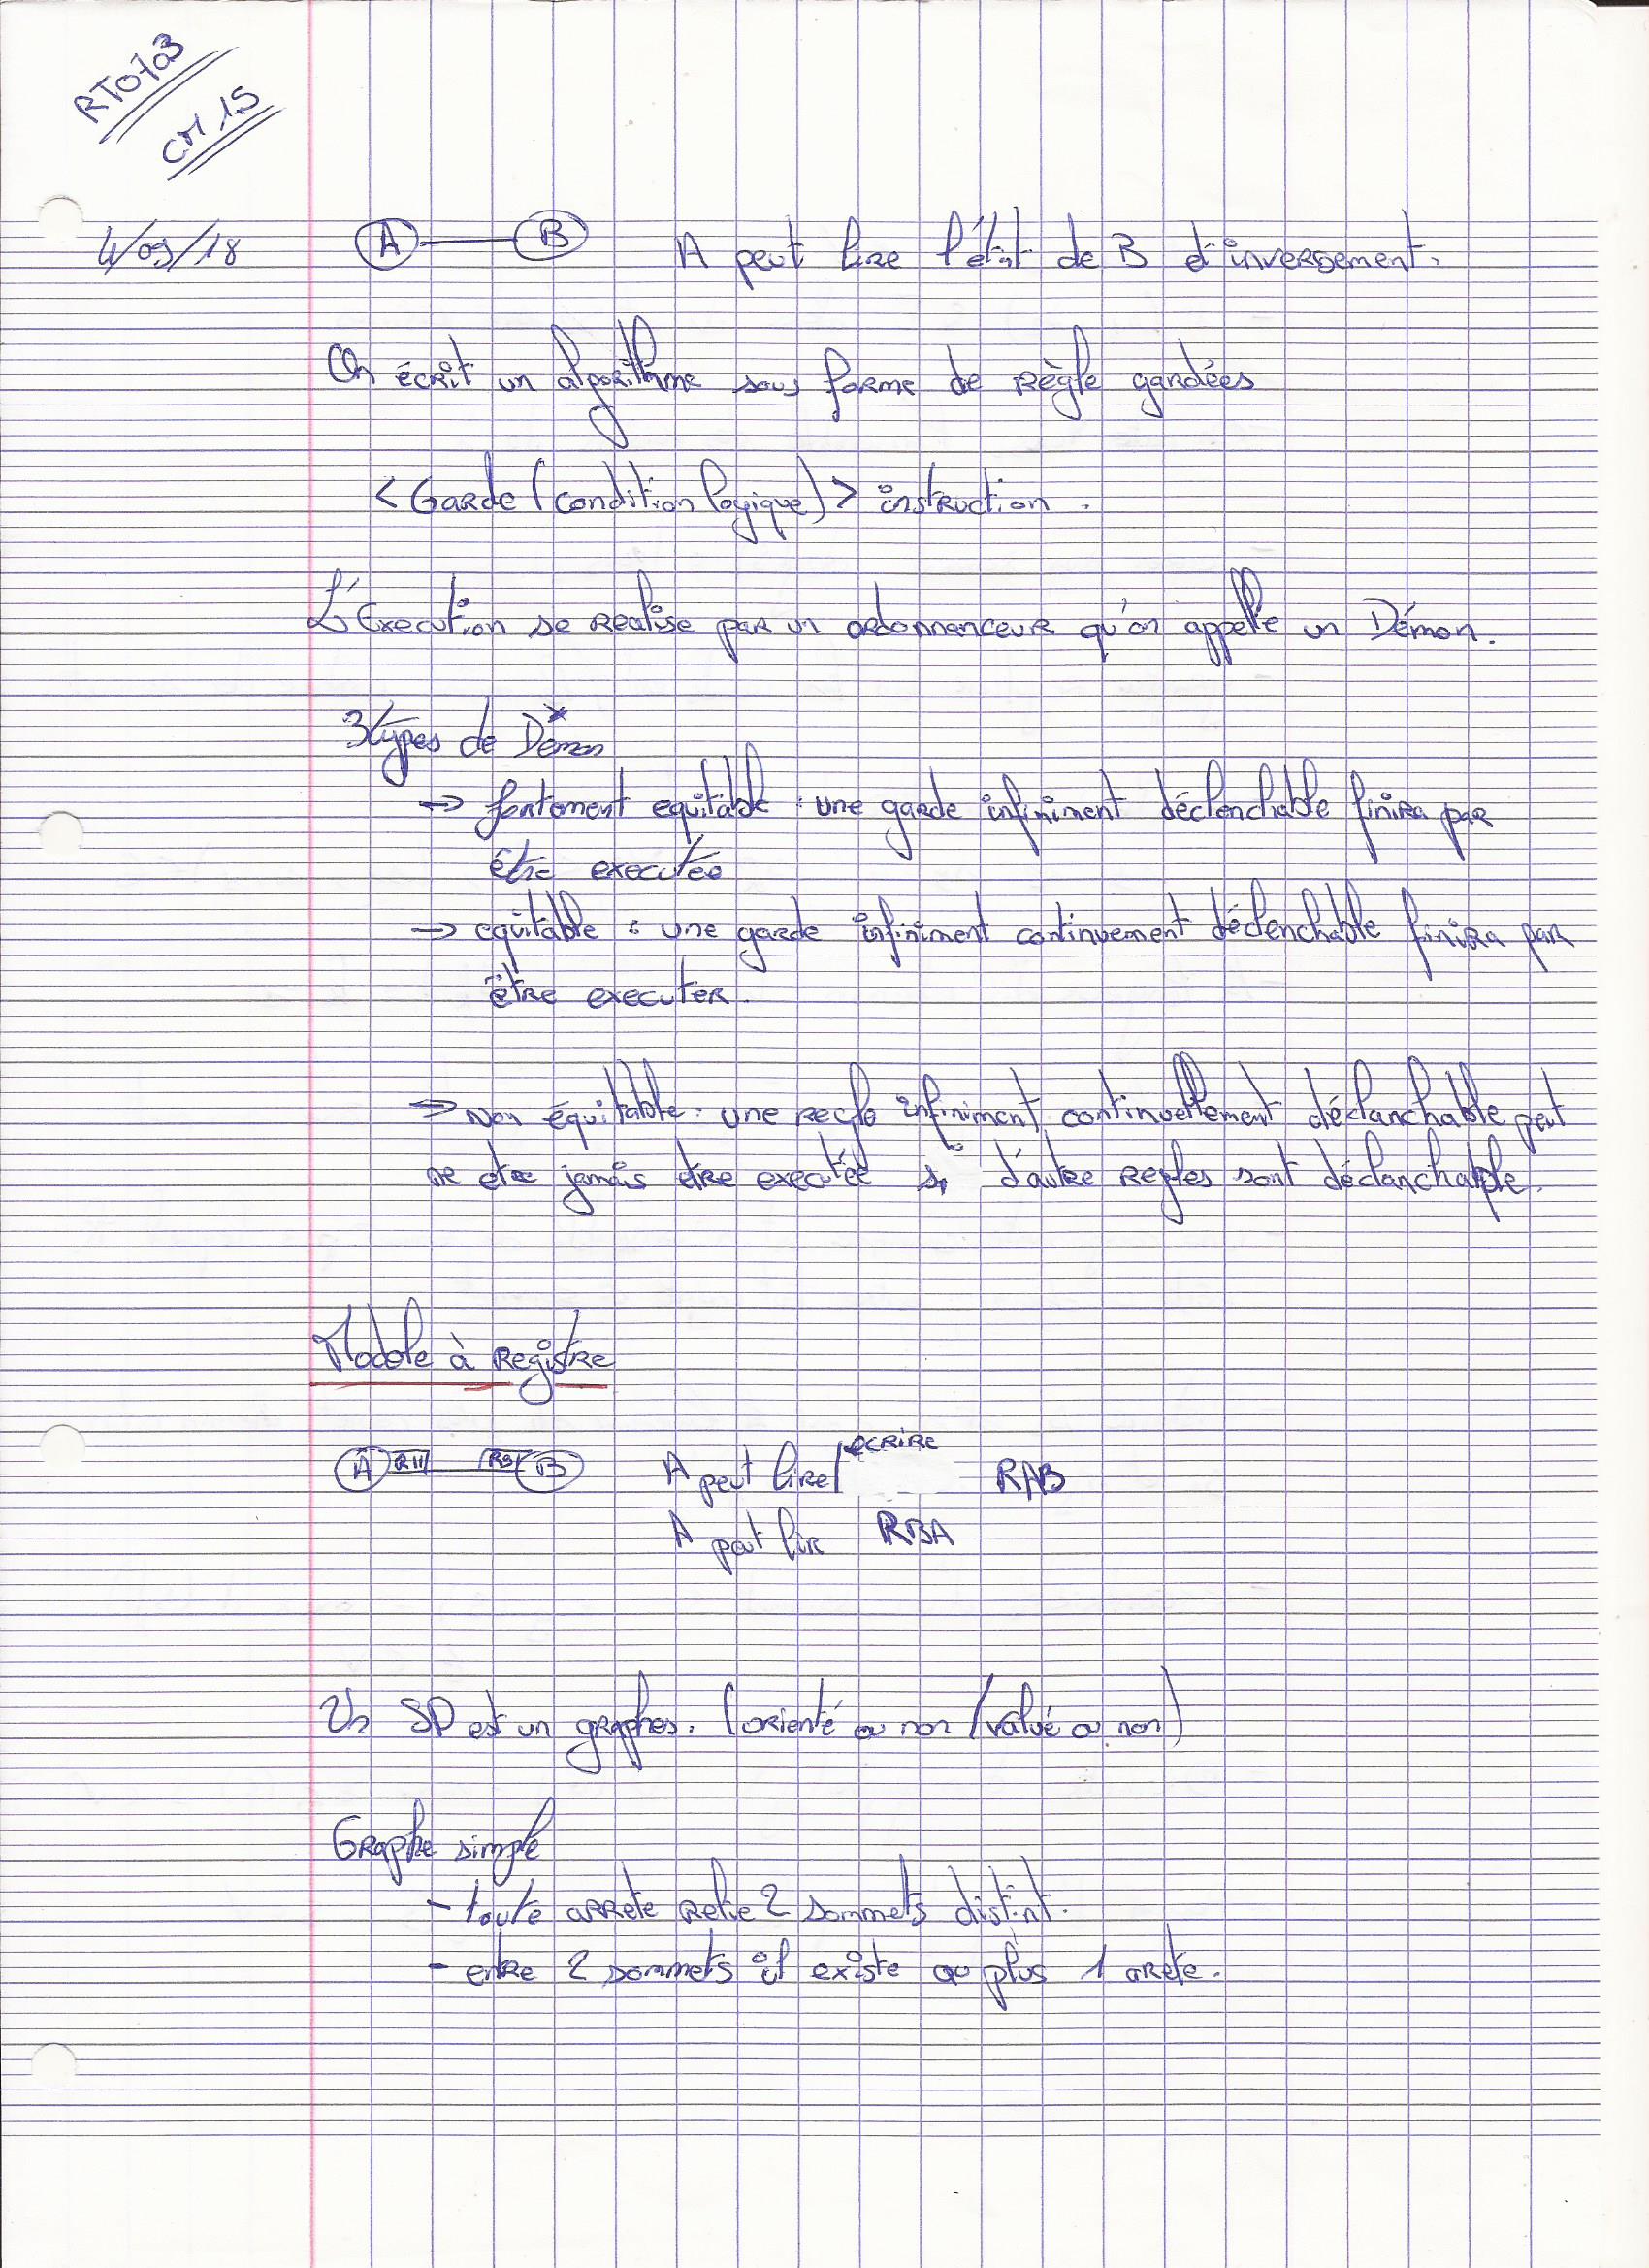 RT0703
CM 1.5
4/09/18
A B A peut lire l'état de B et inversement.
On écrit un algorithme sous forme de Règle gardées
< Garde (condition logique) > instruction.
L'Execution se realise par un ordonnanceur qu'on appelle un Démon.
3 types de Démon
→ fortement equitable : une garde infiniment déclenchable finira par
être executée
→ equitable : une garde infiniment continuement déclenchable finira par
être executer.
→ Non équitable : une regle infiniment continuellement déclanchable peut
ne etre jamais etre executée si d'autre regles sont déclanchable.
Modele à Registre
A B A peut lire/ecrire RAB
A peut lire RBA
Un SD est un graphes. (orienté ou non / valué ou non)
Graphe simple
- toute arrete relie 2 sommets distint.
- entre 2 sommets il existe au plus 1 arete.